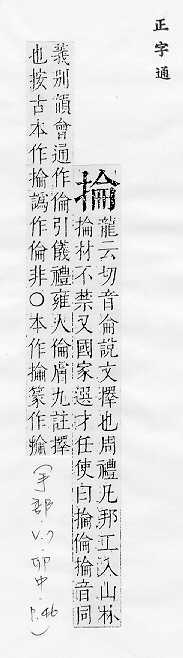 正字通
掄
龍云切音侖說文擇也周禮凡邦工入山林
掄材不禁又國家選才任使曰掄倫掄音同
義別領會通作倫引儀禮雍人倫膚九註擇
也按古本作掄譌作倫非〇本作掄篆作
(手部.V.7.卯中.P.46)